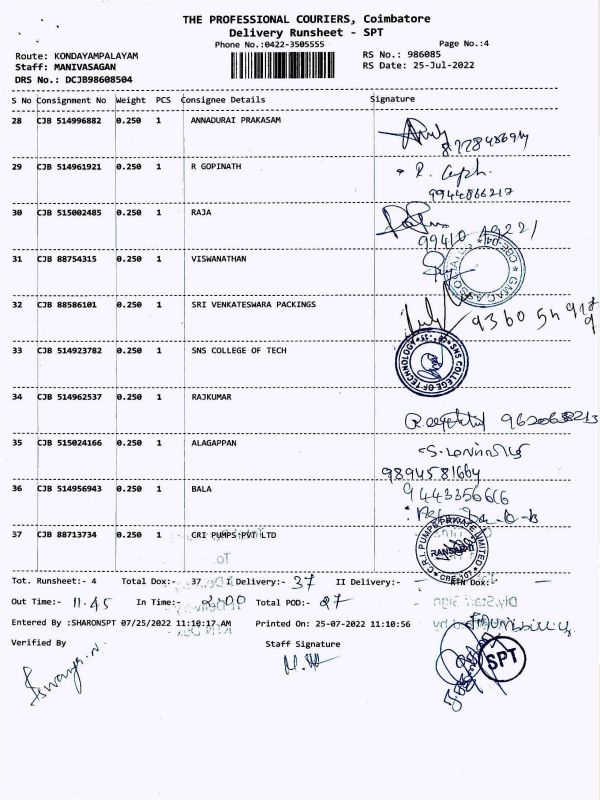 THE PROFESSIONAL COURIERS, Coimbatore
Delivery Runsheet - SPT
Phone No.:0422-3505555
Page No.:4
Route: KONDAYAMPALAYAM
RS No.: 986085
Staff: MANIVASAGAN
RS Date: 25-Jul-2022
DRS No.: DCJB98608504
S No Consignment No Weight PCS Consignee Details Signature
28 CJB 514996882 0.250 1 ANNADURAI PRAKASAM
29 CJB 514961921 0.250 1 R GOPINATH
9944866217
30 CJB 515002485 0.250 1 RAJA
31 CJB 88754315 0.250 1 VISWANATHAN
32 CJB 88586101 0.250 1 SRI VENKATESWARA PACKINGS
33 CJB 514923782 0.250 1 SNS COLLEGE OF TECH
SNS COLLEGE OF TECHNOLOGY
34 CJB 514962537 0.250 1 RAJKUMAR
35 CJB 515024166 0.250 1 ALAGAPPAN
9894581664
36 CJB 514956943 0.250 1 BALA
9443356666
37 CJB 88713734 0.250 1 CRI PUMPS PVT LTD
C.R.I. PUMPS PRIVATE LIMITED
Tot. Runsheet:- 4 Total Dox:- 37 I Delivery:- 37 II Delivery:- RTN Dox:-
Out Time:- 11.45 In Time:- 2100 Total POD:- 27
Entered By :SHARONSPT 07/25/2022 11:10:17 AM Printed On: 25-07-2022 11:10:56
Verified By Staff Signature
SPT